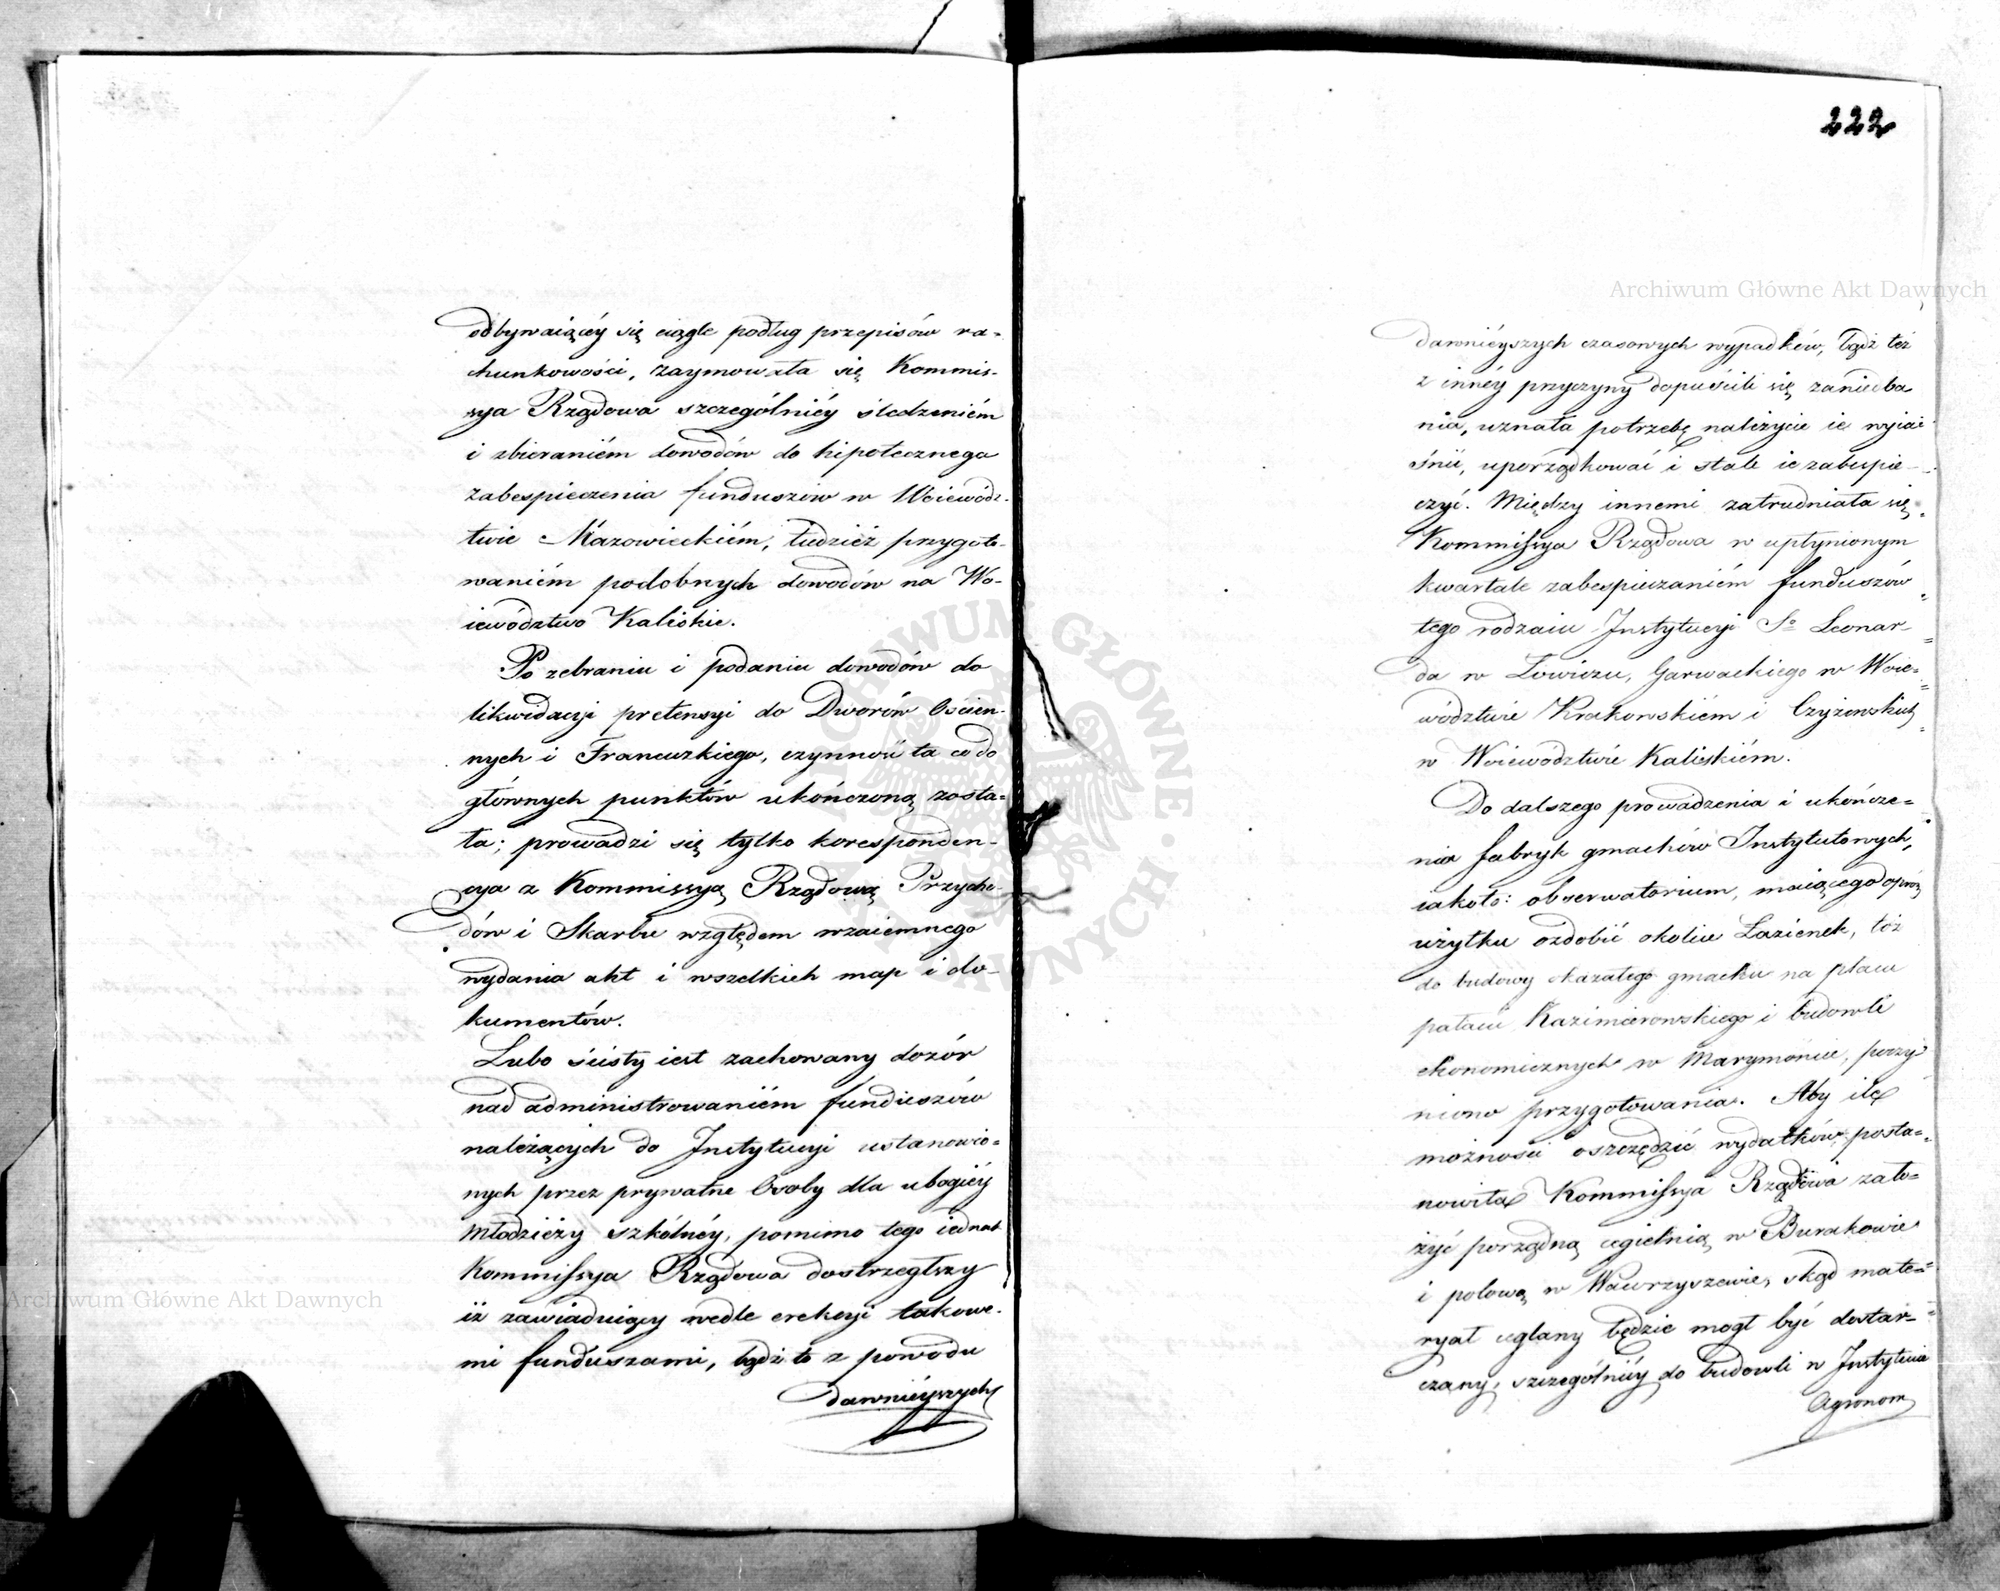 odbywaiącéy się ciągle podług przepisów ra-
chunkowości, zaymowała się Kommis-
sya Rządowa szczególniéy śledzeniém
i zbieraniém dowodów do hipotecznego
zabespieczenia funduszów w Woiewódz-
twie Mazowieckiém, tudzież przygoto-
waniém podobnych dowodów na Wo-
iewództwo Kaliskie.
Po zebraniu i podaniu dowodów do
likwidacyi pretensyi do Dworów Ościen-
nych i Francuzkiego, czynność ta co do
głównych punktów ukończoną zosta-
ła; prowadzi się tylko koresponden-
cya z Kommissyą Rządową Przycho-
dów i Skarbu względem wzaiemnego
wydania akt i wszelkich map i do-
kumentów.
Lubo ścisły iest zachowany dozór
nad administrowaniém funduszów
należących do Instytucyi ustanowio-
nych przez prywatne Osoby dla ubogiéy
Młodzieży szkólnéy, pomimo tego iednak
Kommissya Rządowa dostrzegłszy
iż zawiaduiący wedle erekcyi takowe-
mi funduszami, bądź to z powodu
dawniéyszych
222
dawniéyszych czasowych wypadków, bądź też
z innéy przyczyny dopuścili się zaniedba
nia, uznała potrzebę należycie ie wyia
śnić, uporządkować i stale ie zabespie-
czyć. Między innemi zatrudniała się
Kommissya Rządowa w upłynionym
kwartale zabespieczaniém funduszów
tego rodzaiu Instytucyi So Leonar-
da w Łowiczu, Garwackiego w Woie-
wództwie Krakowskiém i Czyżewskich
w Woiewództwie Kaliskiém.
Do dalszego prowadzenia i ukończe-
nia fabryk gmachów Instytutowych,
iakoto: obserwatorium, maiącego oprócz
użytku ozdobić okolice Łazienek, też
do budowy okazałego gmachu na placu
pałacu Kazimierowskiego i budowli
ekonomicznych w Marymoncie, poczy
niono przygotowania. Aby ile
możności oszczędzić wydatków, posta-
nowiła Kommissya Rządowa zało-
żyć porządną cegielnią w Burakowie
i polową w Wawrzyszewie, skąd mate-
ryał ceglany będzie mogł być dostar-
czany, szczególniéy do budowli w Instytucie
Agronom
Archiwum Główne Akt Dawnych
Archiwum Główne Akt Dawnych
ARCHIWUM GŁÓWNE AKT DAWNYCH